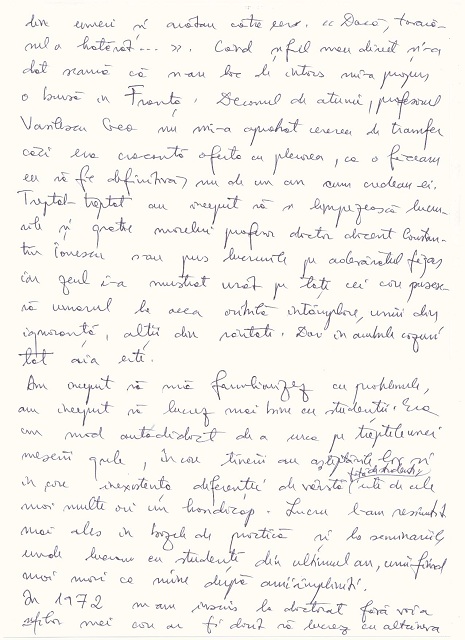 din umeri și arătau către cer. « Dacă, tovară-
șul a hotărât... ». Când șeful meu direct și-a
dat seama că n-au loc de întors mi-a propus
o bursă în Franța. Decanul de atunci, profesorul
Vasilescu nu mi-a aprobat cererea de transfer
căci era oferta cu plecarea, ca o făceam
eu să fie definitivă, nu de un an cum credeau ei.
Treptat-treptat au început să se limpezească lucru-
rile și grație profesor doctor docent Constan-
tin Ionescu s-au pus lucrurile pe adevăratul făgaș
iar zeul i-a mustrat urât pe toți cei care
umărul la acea întâmplare, unii din
ignoranță, alții din răutate. Dar în ambele cazuri
tot aia este.
Am început să mă familiarizez cu problemele,
am început să lucrez mai bine cu studenții. Era
un mod autodidact de a urca pe treptele unei
meserii grele, în care tinerii au așteptările lor și
în care inexistența diferenței de vârstă față de studenți este de cele
mai multe ori un handicap. Lucru l-am resimțit
mai ales în practică și la seminariile
unde lucram cu studenți din ultimul an, unii fiind
mai mari ca mine după ani împliniți.
În 1972 m-am înscris la doctorat fără voia
șefilor mei care ar fi dorit să lucrez cu altcineva